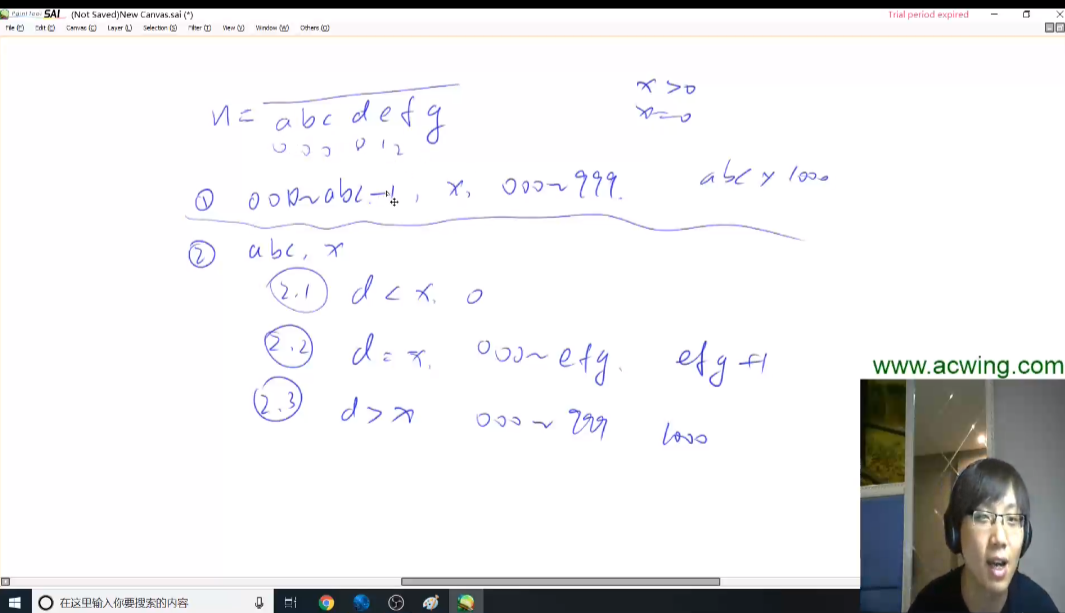 PaintTool SAI (Not Saved)New Canvas.sai (*) Trial period expired
File (F) Edit (E) Canvas (C) Layer (L) Selection (S) Filter (T) View (V) Window (W) Others (O)
n = abc d e f g
0 0 0 0 1 2
x > 0
x = 0
① 000~abc-1, x, 000~999. abc × 1000
② abc, x
2.1 d < x. 0
2.2 d = x. 000~efg. efg+1
2.3 d > x 000~999 1000
www.acwing.com
在这里输入你要搜索的内容